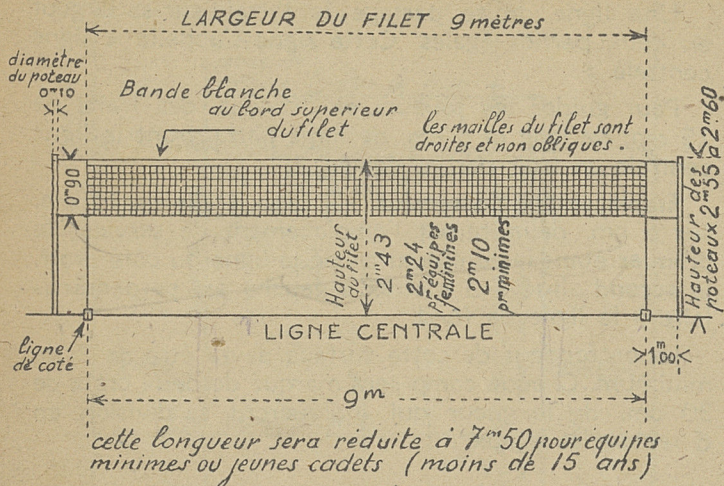 LARGEUR DU FILET 9 mètres
diamètre
du poteau
0m10
Bande blanche
au bord superieur
du filet
les mailles du filet sont
droites et non obliques.
0m90
Hauteur
du filet
2m43
2m24
pr équipes
feminines
2m10
pr minimes
Hauteur des
poteaux 2m55 à 2m60
LIGNE CENTRALE
ligne
de coté
1m00
9m
cette longueur sera réduite à 7m50 pour équipes
minimes ou jeunes cadets (moins de 15 ans)